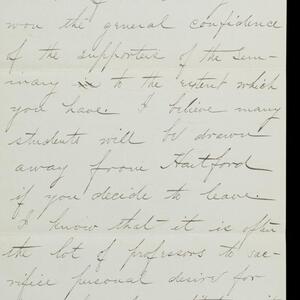 won the general confidence
of the supporters of the sem-
inary to the extent which
you have. I believe many
students will be drawn
away from Hartford
if you decide to leave.
I know that it is often
the lot of professors to sac-
rifice personal desire for